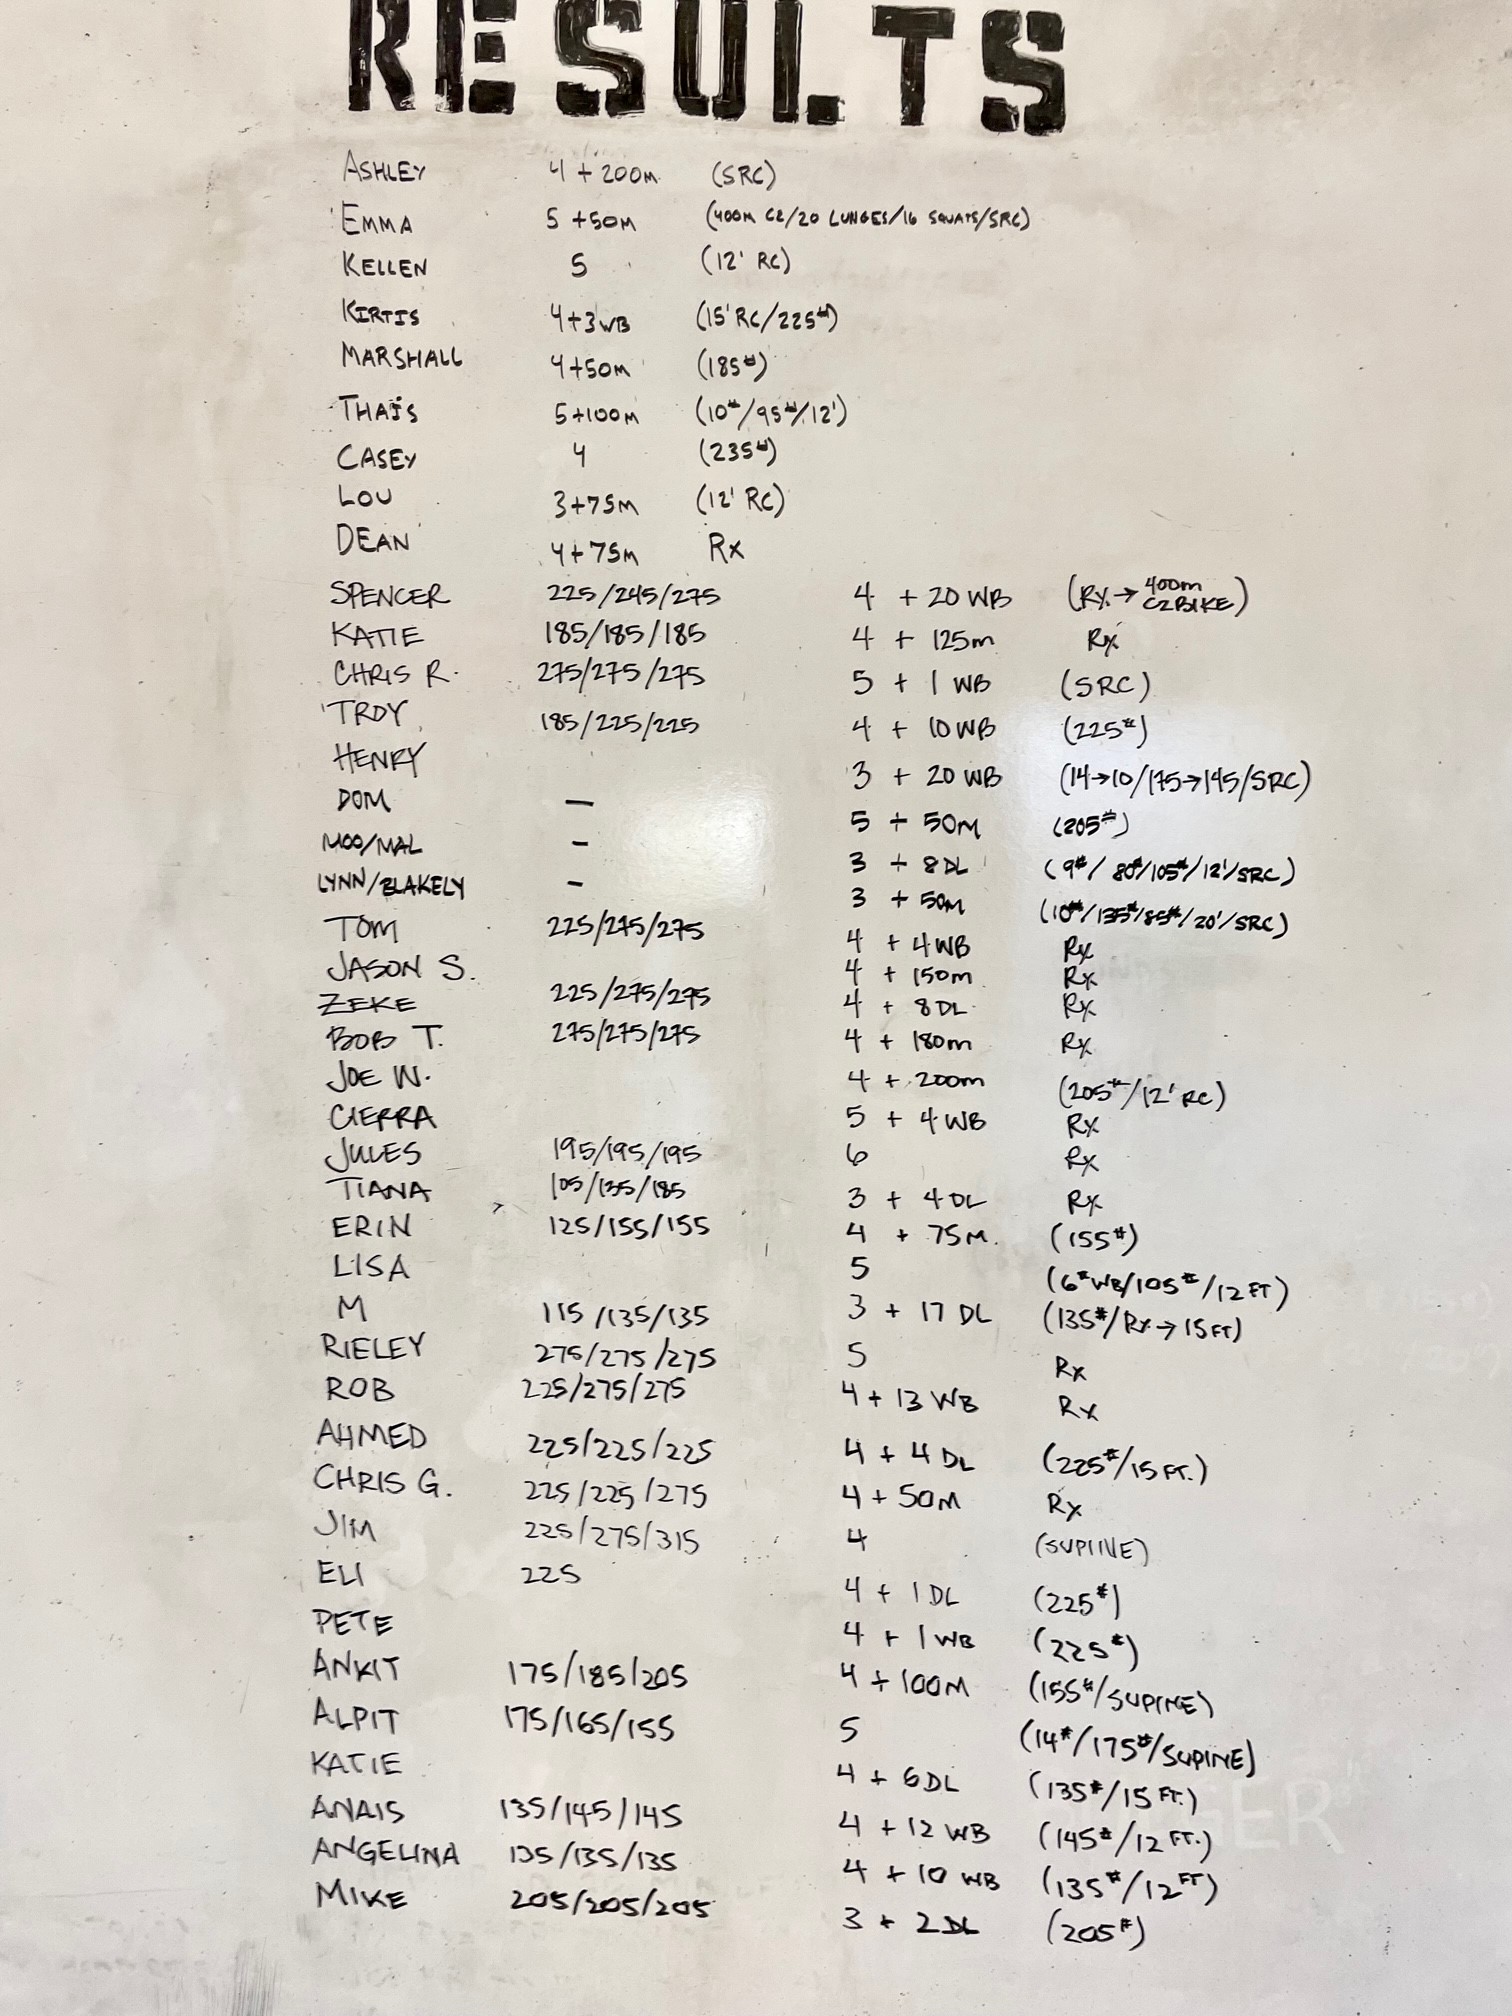 RESULTS
ASHLEY 4 + 200M (SRC)
EMMA 5 + 50M (400M C2/20 LUNGES/16 SQUATS/SRC)
KELLEN 5 (12' RC)
KIRTIS 4+3WB (15' RC/225#)
MARSHALL 4+50M (185#)
THAÏS 5+100M (10#/95#/12')
CASEY 4 (235#)
LOU 3+75M (12' RC)
DEAN 4+75M Rx
SPENCER 225/245/275 4 + 20 WB (Rx → 400m C2BIKE)
KATIE 185/185/185 4 + 125m Rx
CHRIS R. 275/275/275 5 + 1 WB (SRC)
TROY 185/225/225 4 + 10 WB (225#)
HENRY 3 + 20 WB (14→10/175→145/SRC)
DOM — 5 + 50M (205#)
MOO/MAL - 3 + 8DL (9#/80#/105#/12'/SRC)
LYNN/BLAKELY - 3 + 50M (10#/135#/85#/20'/SRC)
TOM 225/275/275 4 + 4 WB Rx
JASON S. 4 + 150m Rx
ZEKE 225/275/275 4 + 8 DL Rx
BOB T. 275/275/275 4 + 180m Rx
JOE W. 4 + 200m (205#/12' RC)
CIERRA 5 + 4 WB Rx
JULES 195/195/195 6 Rx
TIANA 105/135/185 3 + 4 DL Rx
ERIN 125/155/155 4 + 75M. (155#)
LISA 5 (6# WB/105#/12 FT)
M 115/135/135 3 + 17 DL (135#/Rx → 15 FT)
RIELEY 275/275/275 5 Rx
ROB 225/275/275 4 + 13 WB Rx
AHMED 225/225/225 4 + 4 DL (225#/15 FT.)
CHRIS G. 225/225/275 4 + 50M Rx
JIM 225/275/315 4 (SUPINE)
ELI 225 4 + 1 DL (225#)
PETE 4 + 1 WB (225#)
ANKIT 175/185/205 4 + 100M (155#/SUPINE)
ALPIT 175/165/155 5 (14#/175#/SUPINE)
KATIE 4 + 6DL (135#/15 FT.)
ANAIS 135/145/145 4 + 12 WB (145#/12 FT.)
ANGELINA 135/135/135 4 + 10 WB (135#/12 FT)
MIKE 205/205/205 3 + 2DL (205#)